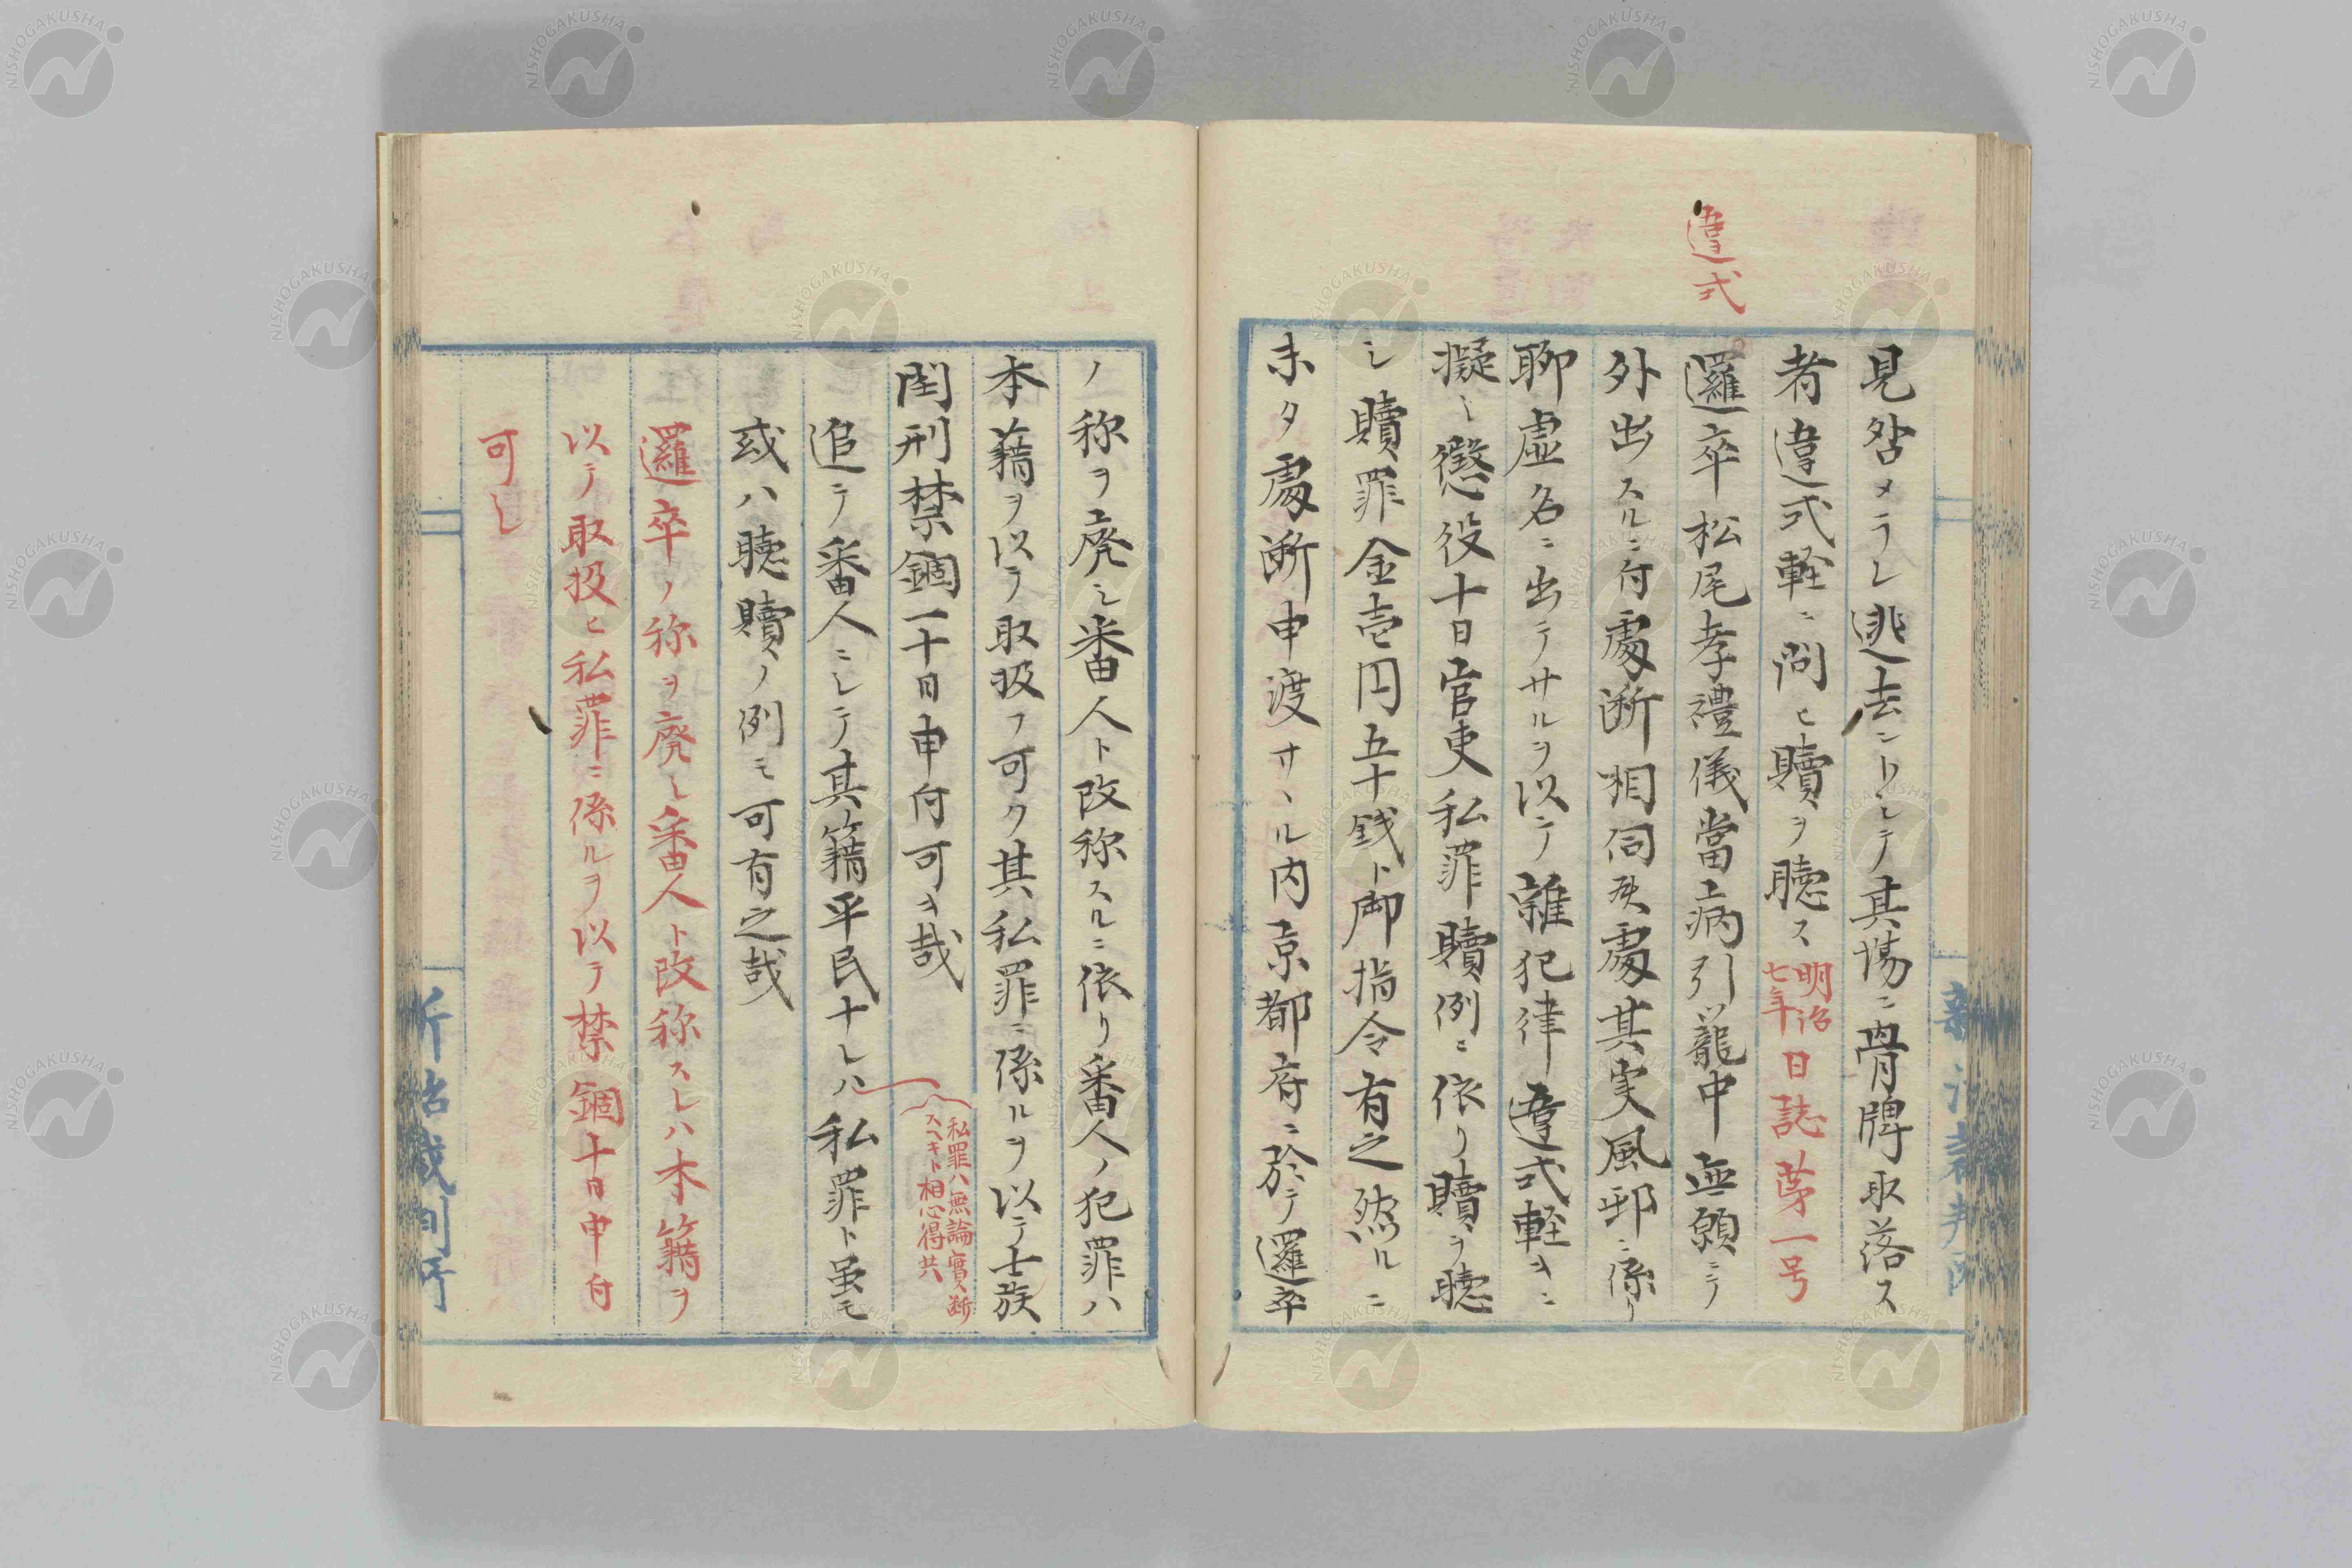 違式
見咎メラレ逃去ントシテ其場ニ骨牌取落ス
者違式軽ニ問ヒ贖ヲ聴ス明治七年日誌第一号
邏卒松尾孝禮儀當病引籠中無願ニテ
外出スルニ付處断相伺候處其実風邪ニ係リ
聊虚名ニ出テサルヲ以テ雑犯律違式軽キニ
擬シ懲役十日官吏私罪贖例ニ依リ贖ヲ聴
シ贖罪金壱円五十銭ト御指令有之然ルニ
未タ處断申渡サヽル内京都府ニ於テ邏卒
ノ称ヲ廃シ番人ト改称スルニ依リ番人ノ犯罪ハ
本籍ヲ以テ取扱フ可ク其私罪ニ係ルヲ以テ士族
閏刑禁錮一十日申付可キ哉
私罪ハ無論實断
スヘキト相心得共
追テ番人ニシテ其籍平民ナレハ私罪ト虽モ
或ハ聴贖ノ例モ可有之哉
邏卒ノ称ヲ廃シ番人ト改称スレハ本籍ヲ
以テ取扱ヒ私罪ニ係ルヲ以テ禁錮十日申付
可シ
新治裁判所
新治裁判所
NISHOGAKUSHA